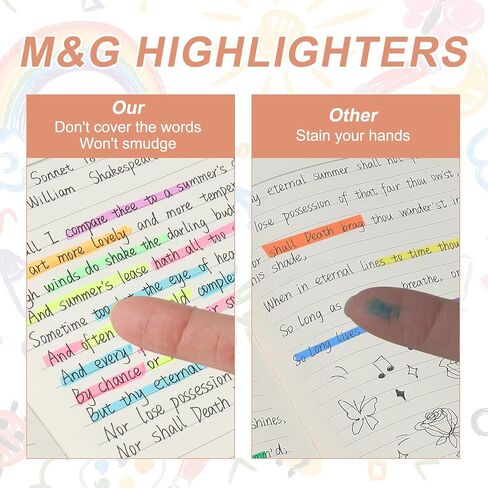 M&G HIGHLIGHTERS
Our
Don't cover the words
Won't smudge
Other
Stain your hands
Sonnet 18
William Shakespeare
all I compare thee to a summer's d
art more lovely and more temper
gh winds do shake the darling bud
And summer's lease hath all too s
Sometime too hot the eye of hea
And often ld comple
And every
By chance or
But thy eternal
Nor lose possession
Nor shall Death
y eternal summer shall not
lose possession of that fair thou ow'st,
shall Death brag thou wander'st in
his shade,
When in eternal lines to time thou
So long as breathe, or
so long lives
shines,
mm'd,